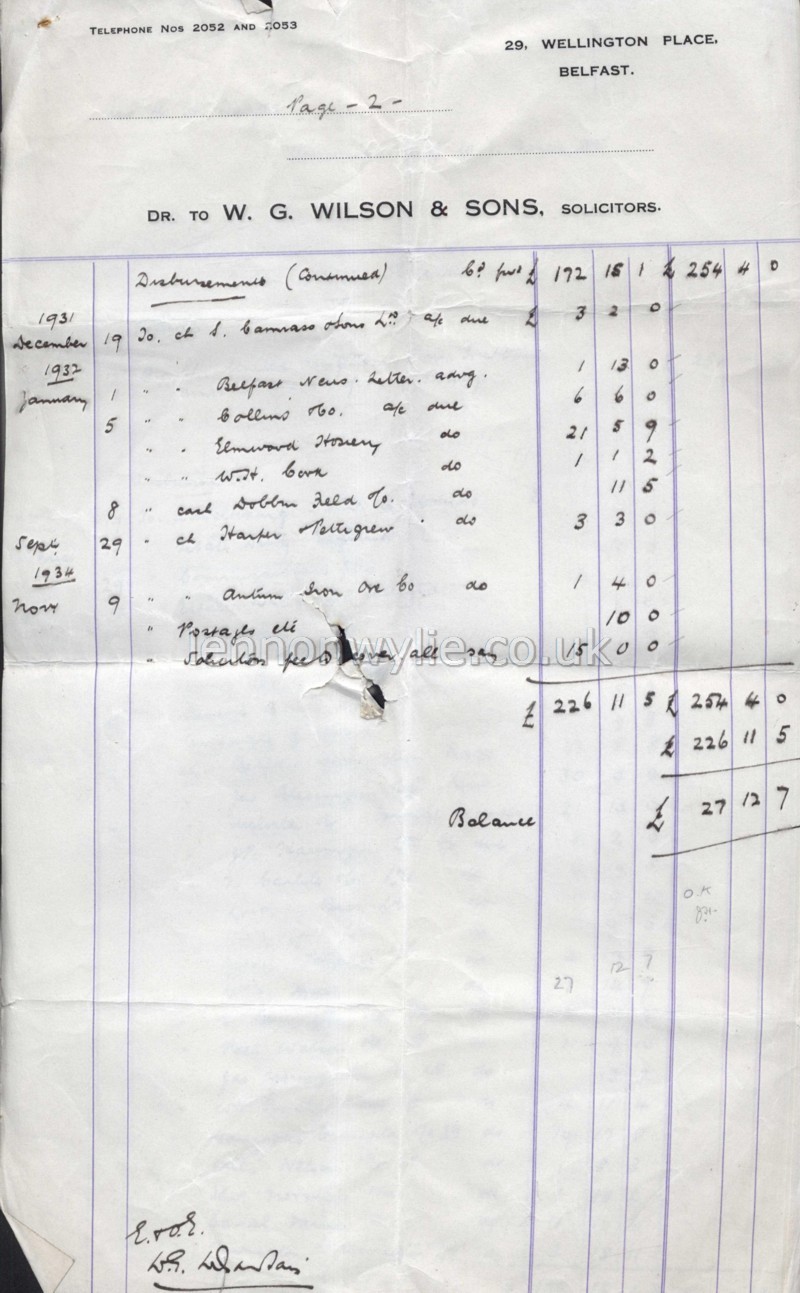 TELEPHONE NOS 2052 AND 2053
29, WELLINGTON PLACE,
BELFAST.
Page - 2 -
DR. TO W. G. WILSON & SONS, SOLICITORS.
Disbursements (Continued) Cd fwd £ 172 15 1 £ 254 4 0
1931
December 19 To. ch S. & Sons Ld a/c due £ 3 2 0
1932
January 1 " " Belfast News. Letter. advg. 1 13 0
5 " " Collins & Co. a/c due 6 6 0
" " Elmwood Hosiery do 21 5 9
" " W.H. Cork do 1 1 2
8 " cash Dobbin & Co. do 11 5
Sept 29 " ch Harper & Pettigrew " do 3 3 0
1934
Novr 9 " " Antrim Iron Ore Co do 1 4 0
" Postages etc 10 0
" Solicitors fee over all say 15 0 0
£ 226 11 5 £ 254 4 0
£ 226 11 5
Balance £ 27 12 7
O.K
27 12 7
E. & O.E.
W.G. Wilson & Sons
lennonwylie.co.uk